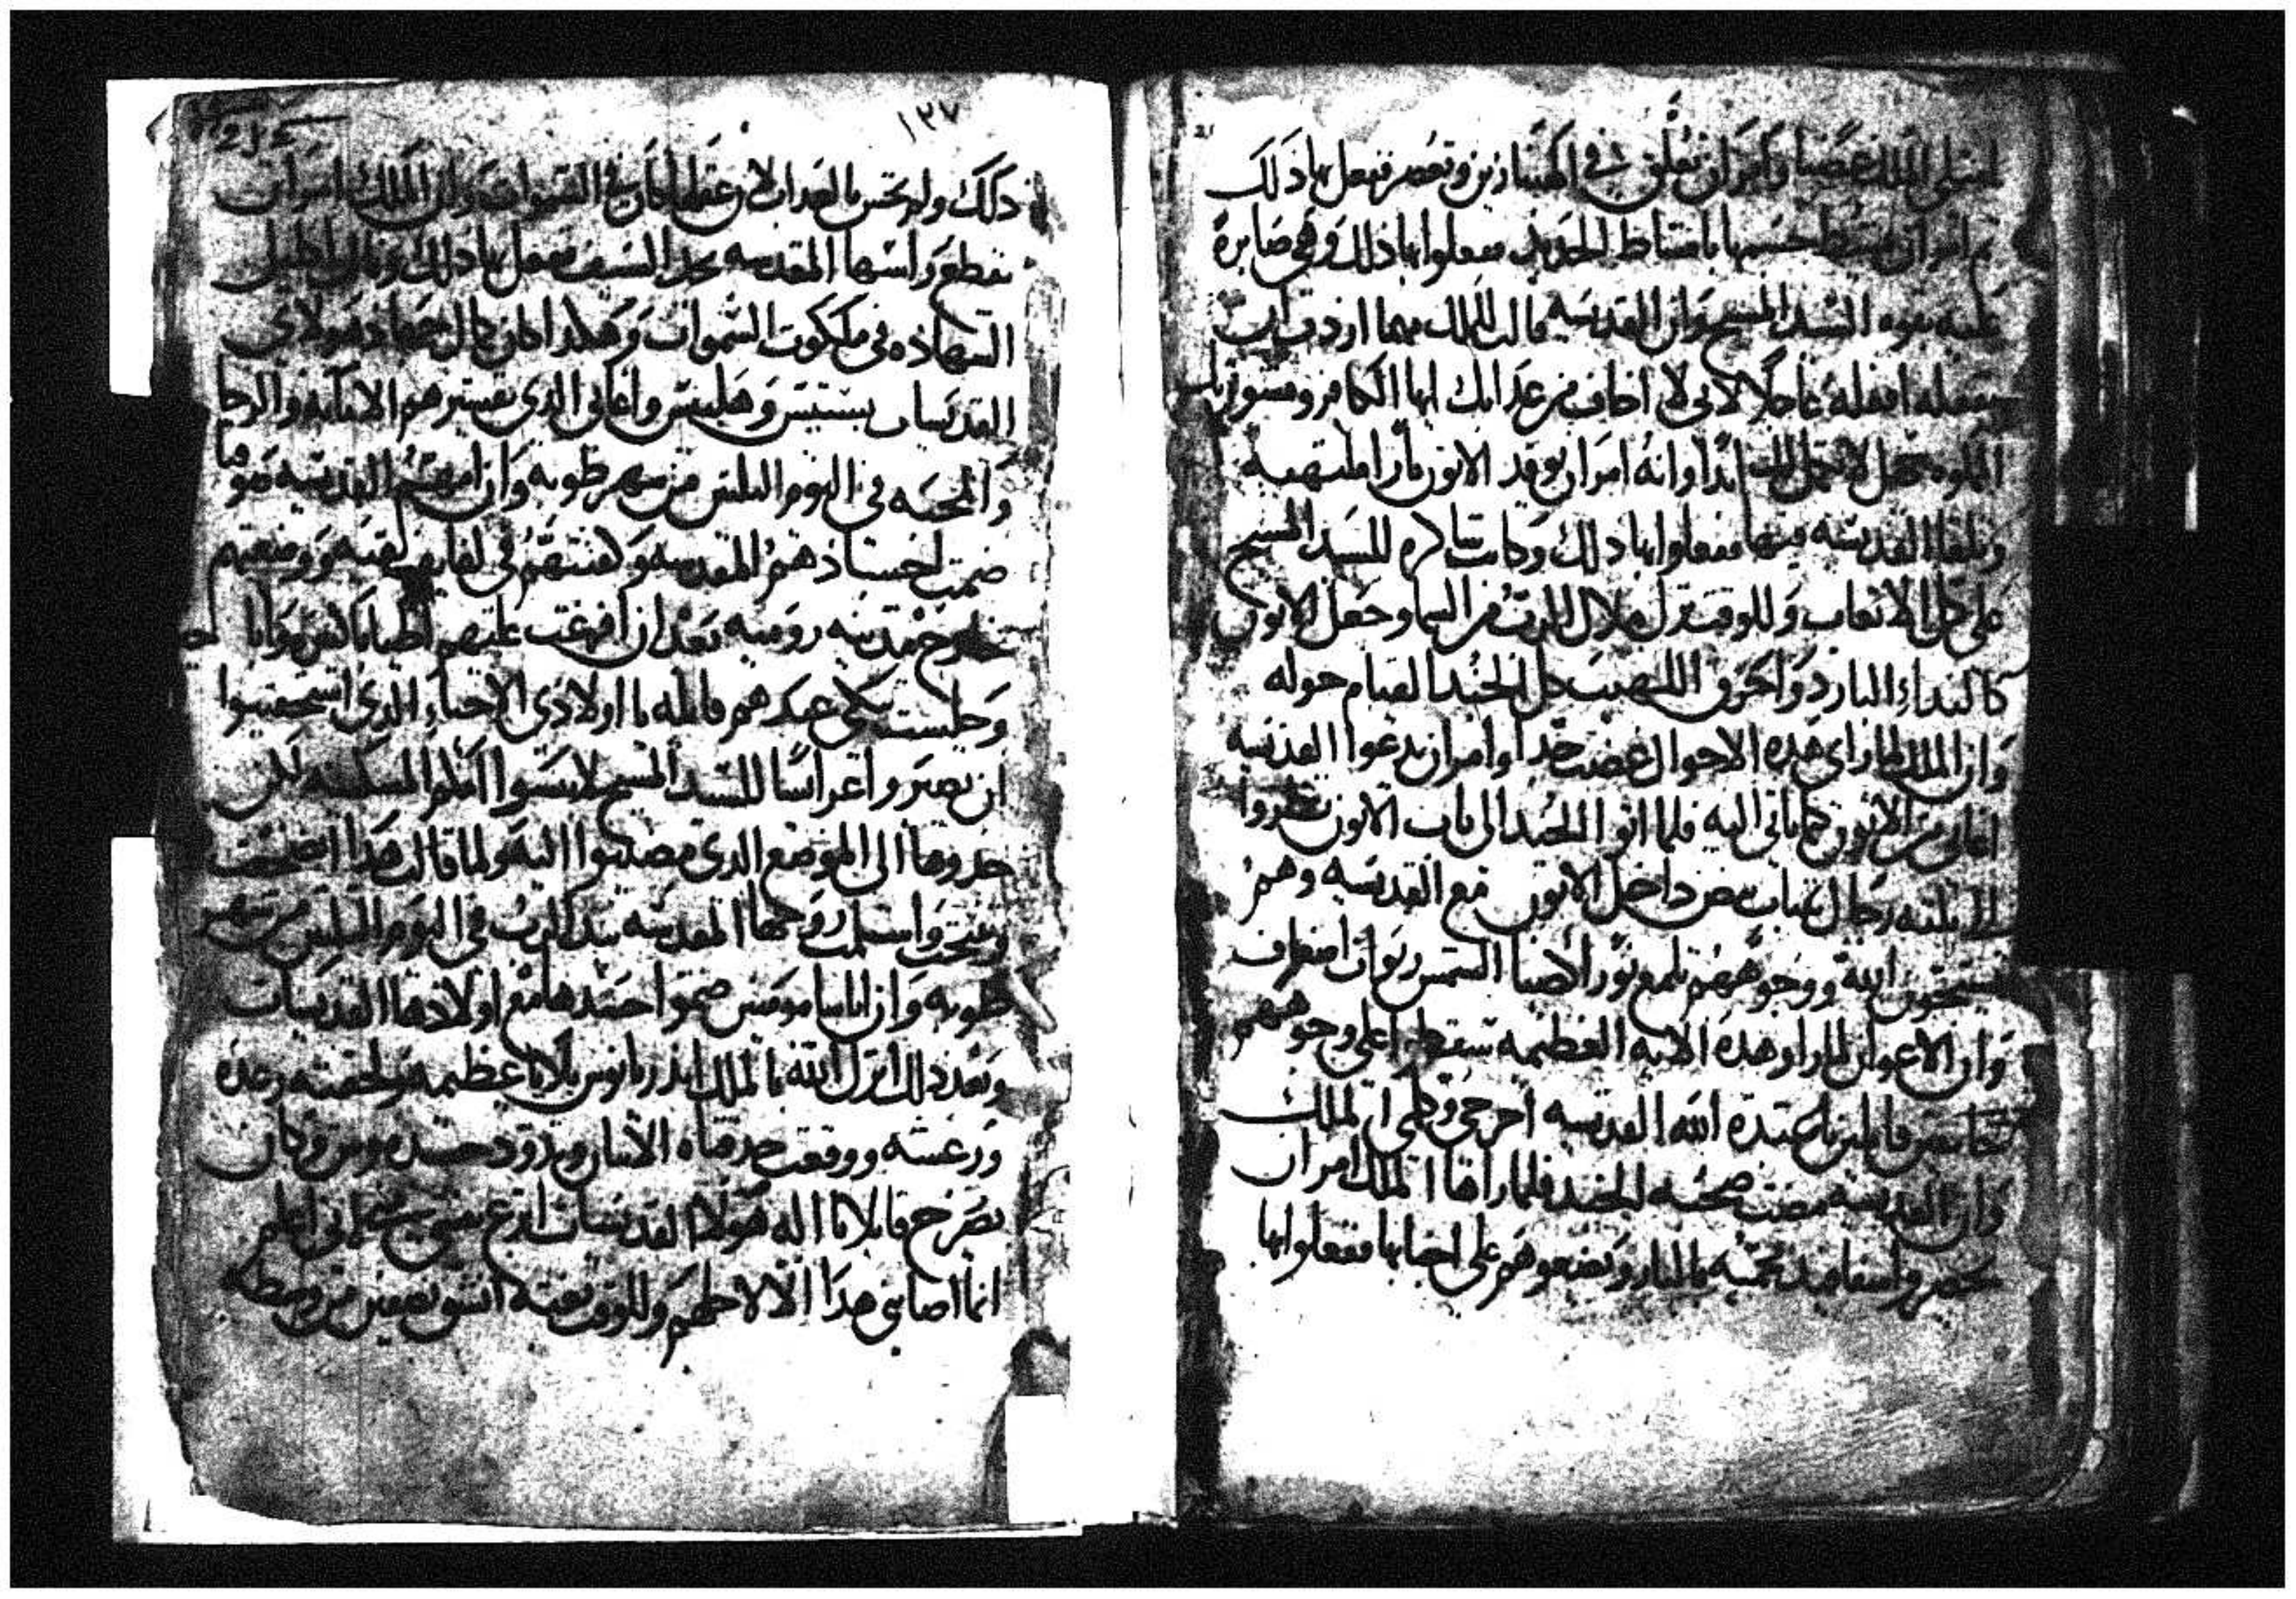 امتلى الملك غضبا وامر ان تعلق في الهنبازين وتعصر ففعل بها ذلك
ثم امر ان يمشط جسمها بامشاط الحديد ففعلوا بها ذلك وهي صابرة
عليه بقوه السيد المسيح وان القديسه قالت للملك مهما اردت ان
تفعله افعله عاجلا لاني لا اخاف من عذابك ايها الكافر
ابدا وانه امر ان يوقد الاتون نارا ملتهبه
وتلقا القديسه فيها ففعلوا بها ذلك وكانت شاكره للسيد المسيح
على كل الاتعاب وللوقت نزل ملاك الرب من السما وجعل الاتون
كالنداء البارد واحرق اللهيب كل الجند القيام حوله
وان الملك لما راى هذه الاحوال غضب جدا وامر ان يدعوا القديسه
اغابي من الاتون كيما ياتي اليه فلما اتوا الجند الى باب الاتون نظروا
الثلثه رجال بثياب بيض داخل الاتون مع القديسه وهم
يسبحون الله ووجوههم تلمع نور الاضيا الشمس ربوات اضعاف
وان الاعوان لما راو هذه الايه العظيمه سقطوا على وجوههم
قايلين يا عبدة الله القديسه اخرجي وكلمي الملك
وان القديسه مضت صحبه الجند فلما راها الملك امر ان
تحضر اسفافيد محميه بالنار ويضعوهم على اجنابها ففعلوا بها
١٣٧
215
ذلك ولم تحس بالعذاب لان عقلها كان في السموات وان الملك امر ان
تقطع راسها المقدسه بحد السيف ففعل بها ذلك ونالت اكليل
الشهاده في ملكوت السموات وهكذا كان كمال جهاد هولاي
القديسات بستيس وهلبيس واغابي الذي تفسيرهم الامانه والرجا
والمحبه في اليوم الثلثين من شهر طوبه وان امهم القديسه صوفيا
ضمت اجسادهم المقدسه وكفنتهم في لفايف نقيه ووضعتهم
خارج مدينه روميه بعد ان افرغت عليهم اطيابا كثيره وانها
وجلست تبكي عندهم قايله يا اولادي الاحباء الذي استحقيتوا
ان تصيروا عرايسا للسيد المسيح لا تنسوا امكم المسكينه لكن
خدوها الى الموضع الذي مضيتوا اليه ولما قالت هذا اضطجعت
وتنيحت واسلمت روحها المقدسه بيد الرب في اليوم الثلثين من شهر
طوبه وان اناسا مومنين ضموا جسدها مع اولادها القديسات
وبعد ذلك انزل الله بالملك اندريانوس بلايا عظيمه ولحقته رعده
ورعشه ووقعت حدقتاه الاثنان وتدود جسده ونتن وكان
يصرخ قايلا يا اله هولا القديسات انزع نفسي مني لاني اعلم
انما اصابني هذا الا لاجلهم وللوقت بغته انشق نصفين من وسطه